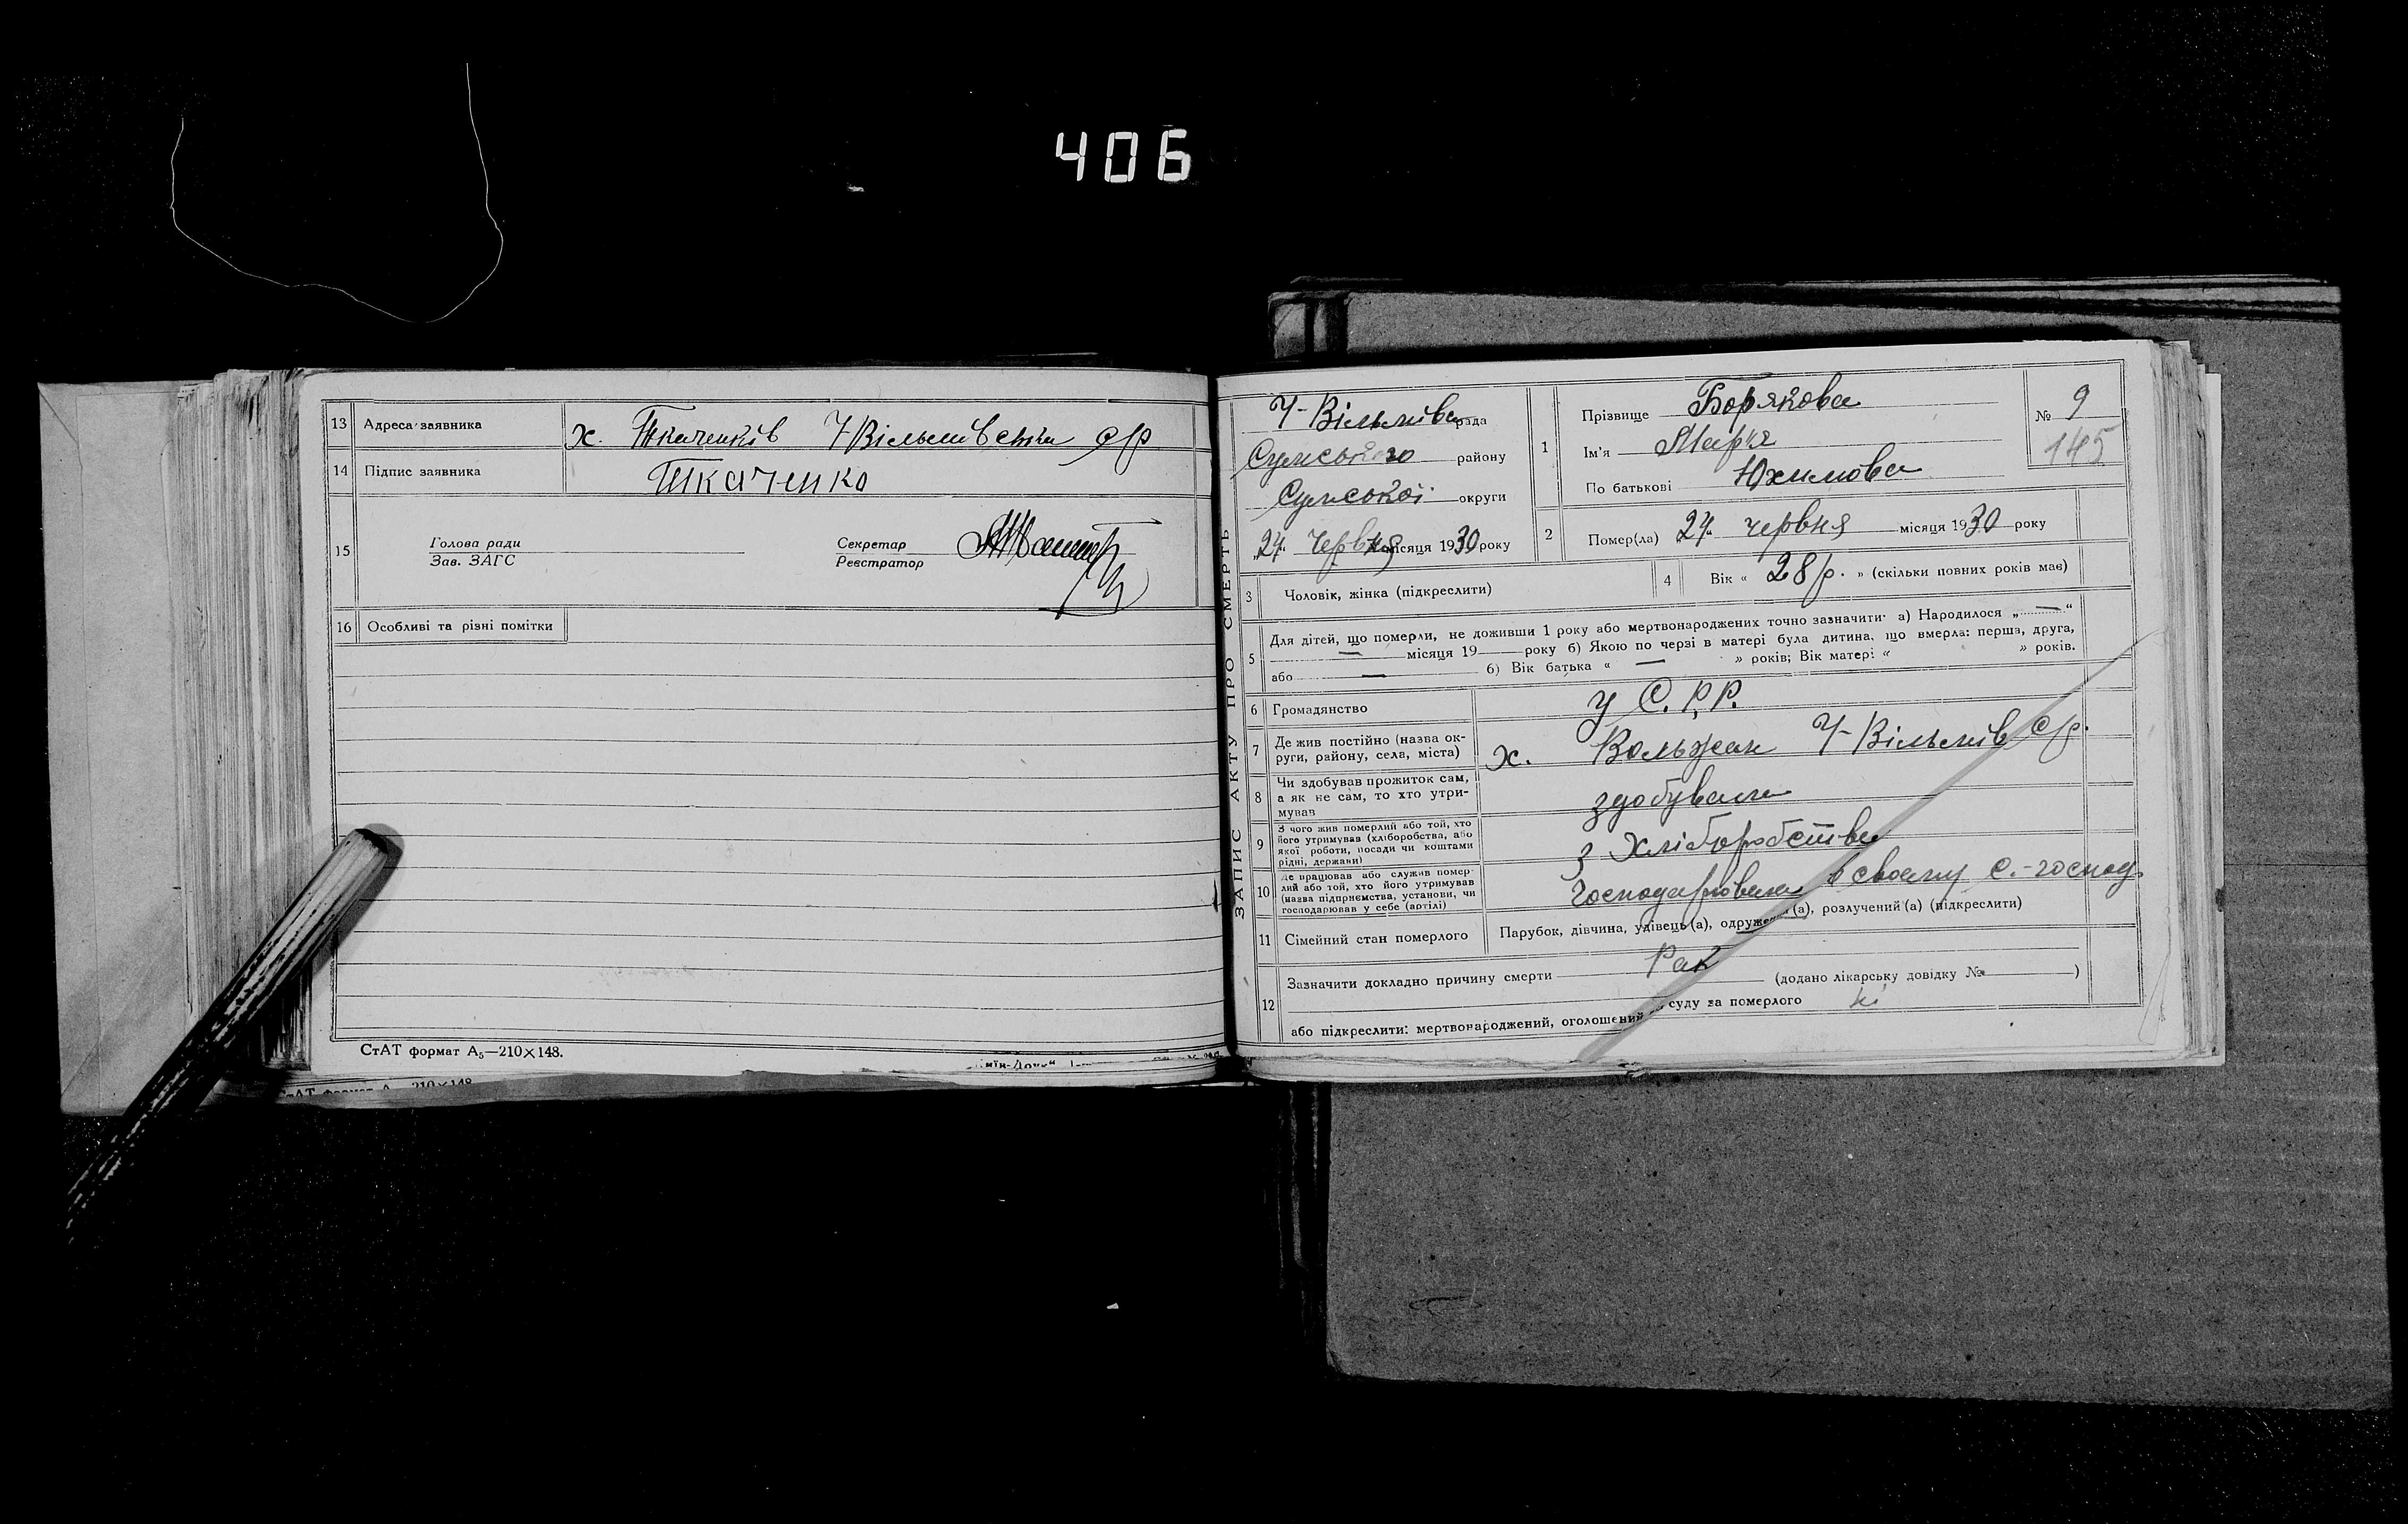 406
13 Адреса заявника х. Ткаченків Ч-Вільшівська с/р
14 Підпис заявника Ткаченко
15 Голова ради
Зав. ЗАГС
Секретар
Реєстратор
16 Особливі та різні помітки
СтАТ формат А₅—210×148.
ЗАПИС АКТУ ПРО СМЕРТЬ
рада
Сумського району
Сумської округи
„24“ Червня місяця 1930 року
1 Прізвище Борякова
Ім'я Марія
По батькові Юхимова
№ 9
145
2 Помер(ла) „24“ червня місяця 1930 року
3 Чоловік, жінка (підкреслити)
4 Вік « 28 р. » (скільки повних років має)
5 Для дітей, що померли, не доживши 1 року або мертвонароджених точно зазначити: а) Народилося „ — “
— місяця 19 — року б) Якою по черзі в матері була дитина, що вмерла: перша, друга,
або — 6) Вік батька « — » років; Вік матері « » років.
6 Громадянство У С.Р.Р.
7 Де жив постійно (назва ок-
руги, району, села, міста) х. с/р.
8 Чи здобував прожиток сам,
а як не сам, то хто утри-
мував здобувала
9 З чого жив померлий або той, хто
його утримував (хліборобства, або
якої роботи, посади чи коштами
рідні, держави) з Хліборобства
10 Де працював або служив помер-
лий або той, хто його утримував
(назва підприємства, установи, чи
господарював у себе (артілі) Господарювала в своєму с.-господ.
11 Сімейний стан померлого Парубок, дівчина, удівець(а), одружений(а), розлучений(а) (підкреслити)
12 Зазначити докладно причину смерти Рак (додано лікарську довідку № — )
або підкреслити: мертвонароджений, оголошений суду за померлого ні